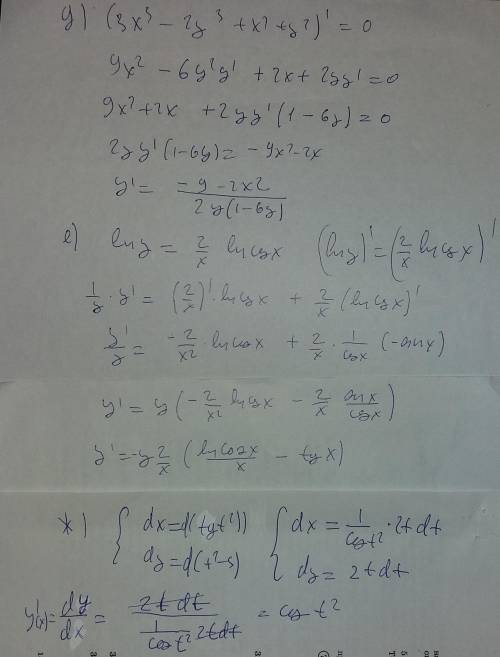 д) (3x³ − 2y³ + x² + y²)' = 0
9x² − 6y²y' + 2x + 2yy' = 0
9x² + 2x + 2yy'(1 − 6y) = 0
2yy'(1−6y) = − 9x² − 2x
y' = (−9 − 2x2)/(2y(1−6y))
е) ln y = 2/x ln cos x (ln y)' = (2/x ln cos x)'
1/y · y' = (2/x)' · ln cos x + 2/x (ln cos x)'
y'/y = −2/x² · ln cos x + 2/x · 1/cos x (−sin x)
y' = y (−2/x² ln cos x − 2/x sin x/cos x)
y' = −y 2/x (ln cos x/x − tg x)
ж) { dx = d(tg t²)) { dx = 1/cos t² · 2t dt
dy = d(t²−s) dy = 2t dt
y'(x) = dy/dx = 2t dt/(1/cos t² 2t dt) = cos t²